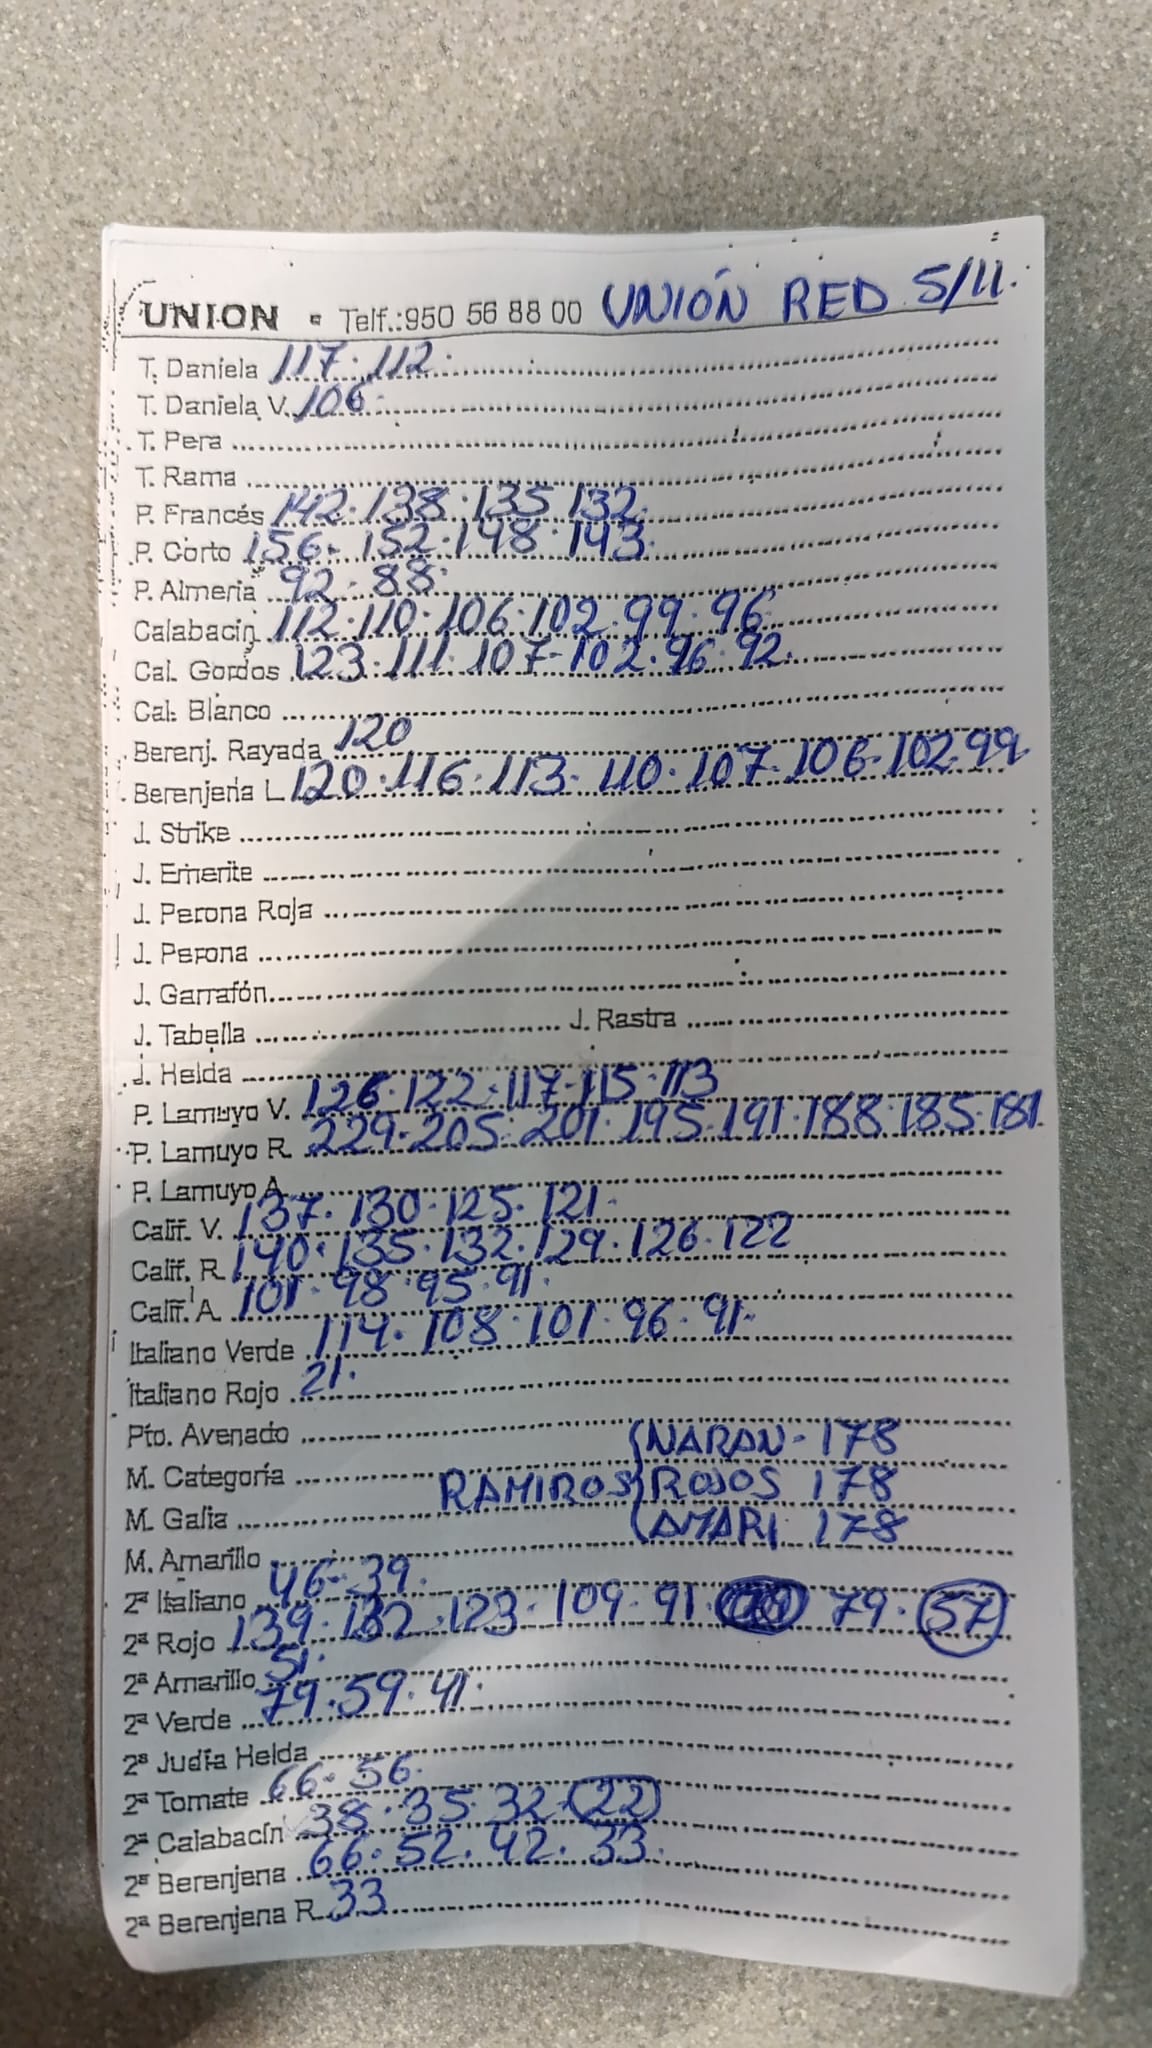 UNION - Telf.:950 56 88 00 UNIÓN RED 5/11.
T. Daniela 117. 112.
T. Daniela V. 106.
T. Pera
T. Rama
P. Francés 142. 138. 135 132.
P. Corto 156. 152. 148. 143.
P. Almería 92. 88.
Calabacín 112. 110. 106. 102. 99. 96.
Cal. Gordos 123. 111. 107- 102. 96. 92.
Cal. Blanco
Berenj. Rayada 120
Berenjena L 120. 116. 113. 110. 107. 106. 102. 99
J. Strike
J. Emerite
J. Perona Roja
J. Perona
J. Garrafón
J. Tabella J. Rastra
J. Helda
P. Lamuyo V. 126. 122. 117- 115. 113
P. Lamuyo R. 229. 205. 201. 195. 191. 188. 185. 181.
P. Lamuyo A.
Calif. V. 137. 130. 125. 121.
Calif. R. 140. 135. 132. 129. 126. 122
Calif. A. 101. 98. 95. 91.
Italiano Verde 114. 108. 101. 96. 91.
Italiano Rojo 21.
Pto. Avenado
NARAN- 178
M. Categoría
RAMIROS ROJOS 178
M. Galia
AMARI. 178
M. Amarillo
2ª Italiano 46- 39.
2ª Rojo 139. 132. 123. 109. 91. 79. 57
2ª Amarillo 51.
2ª Verde 79. 59. 41.
2ª Judía Helda
2ª Tomate 66. 56.
2ª Calabacín 38. 35. 32. 22
2ª Berenjena 66. 52. 42. 33.
2ª Berenjena R. 33